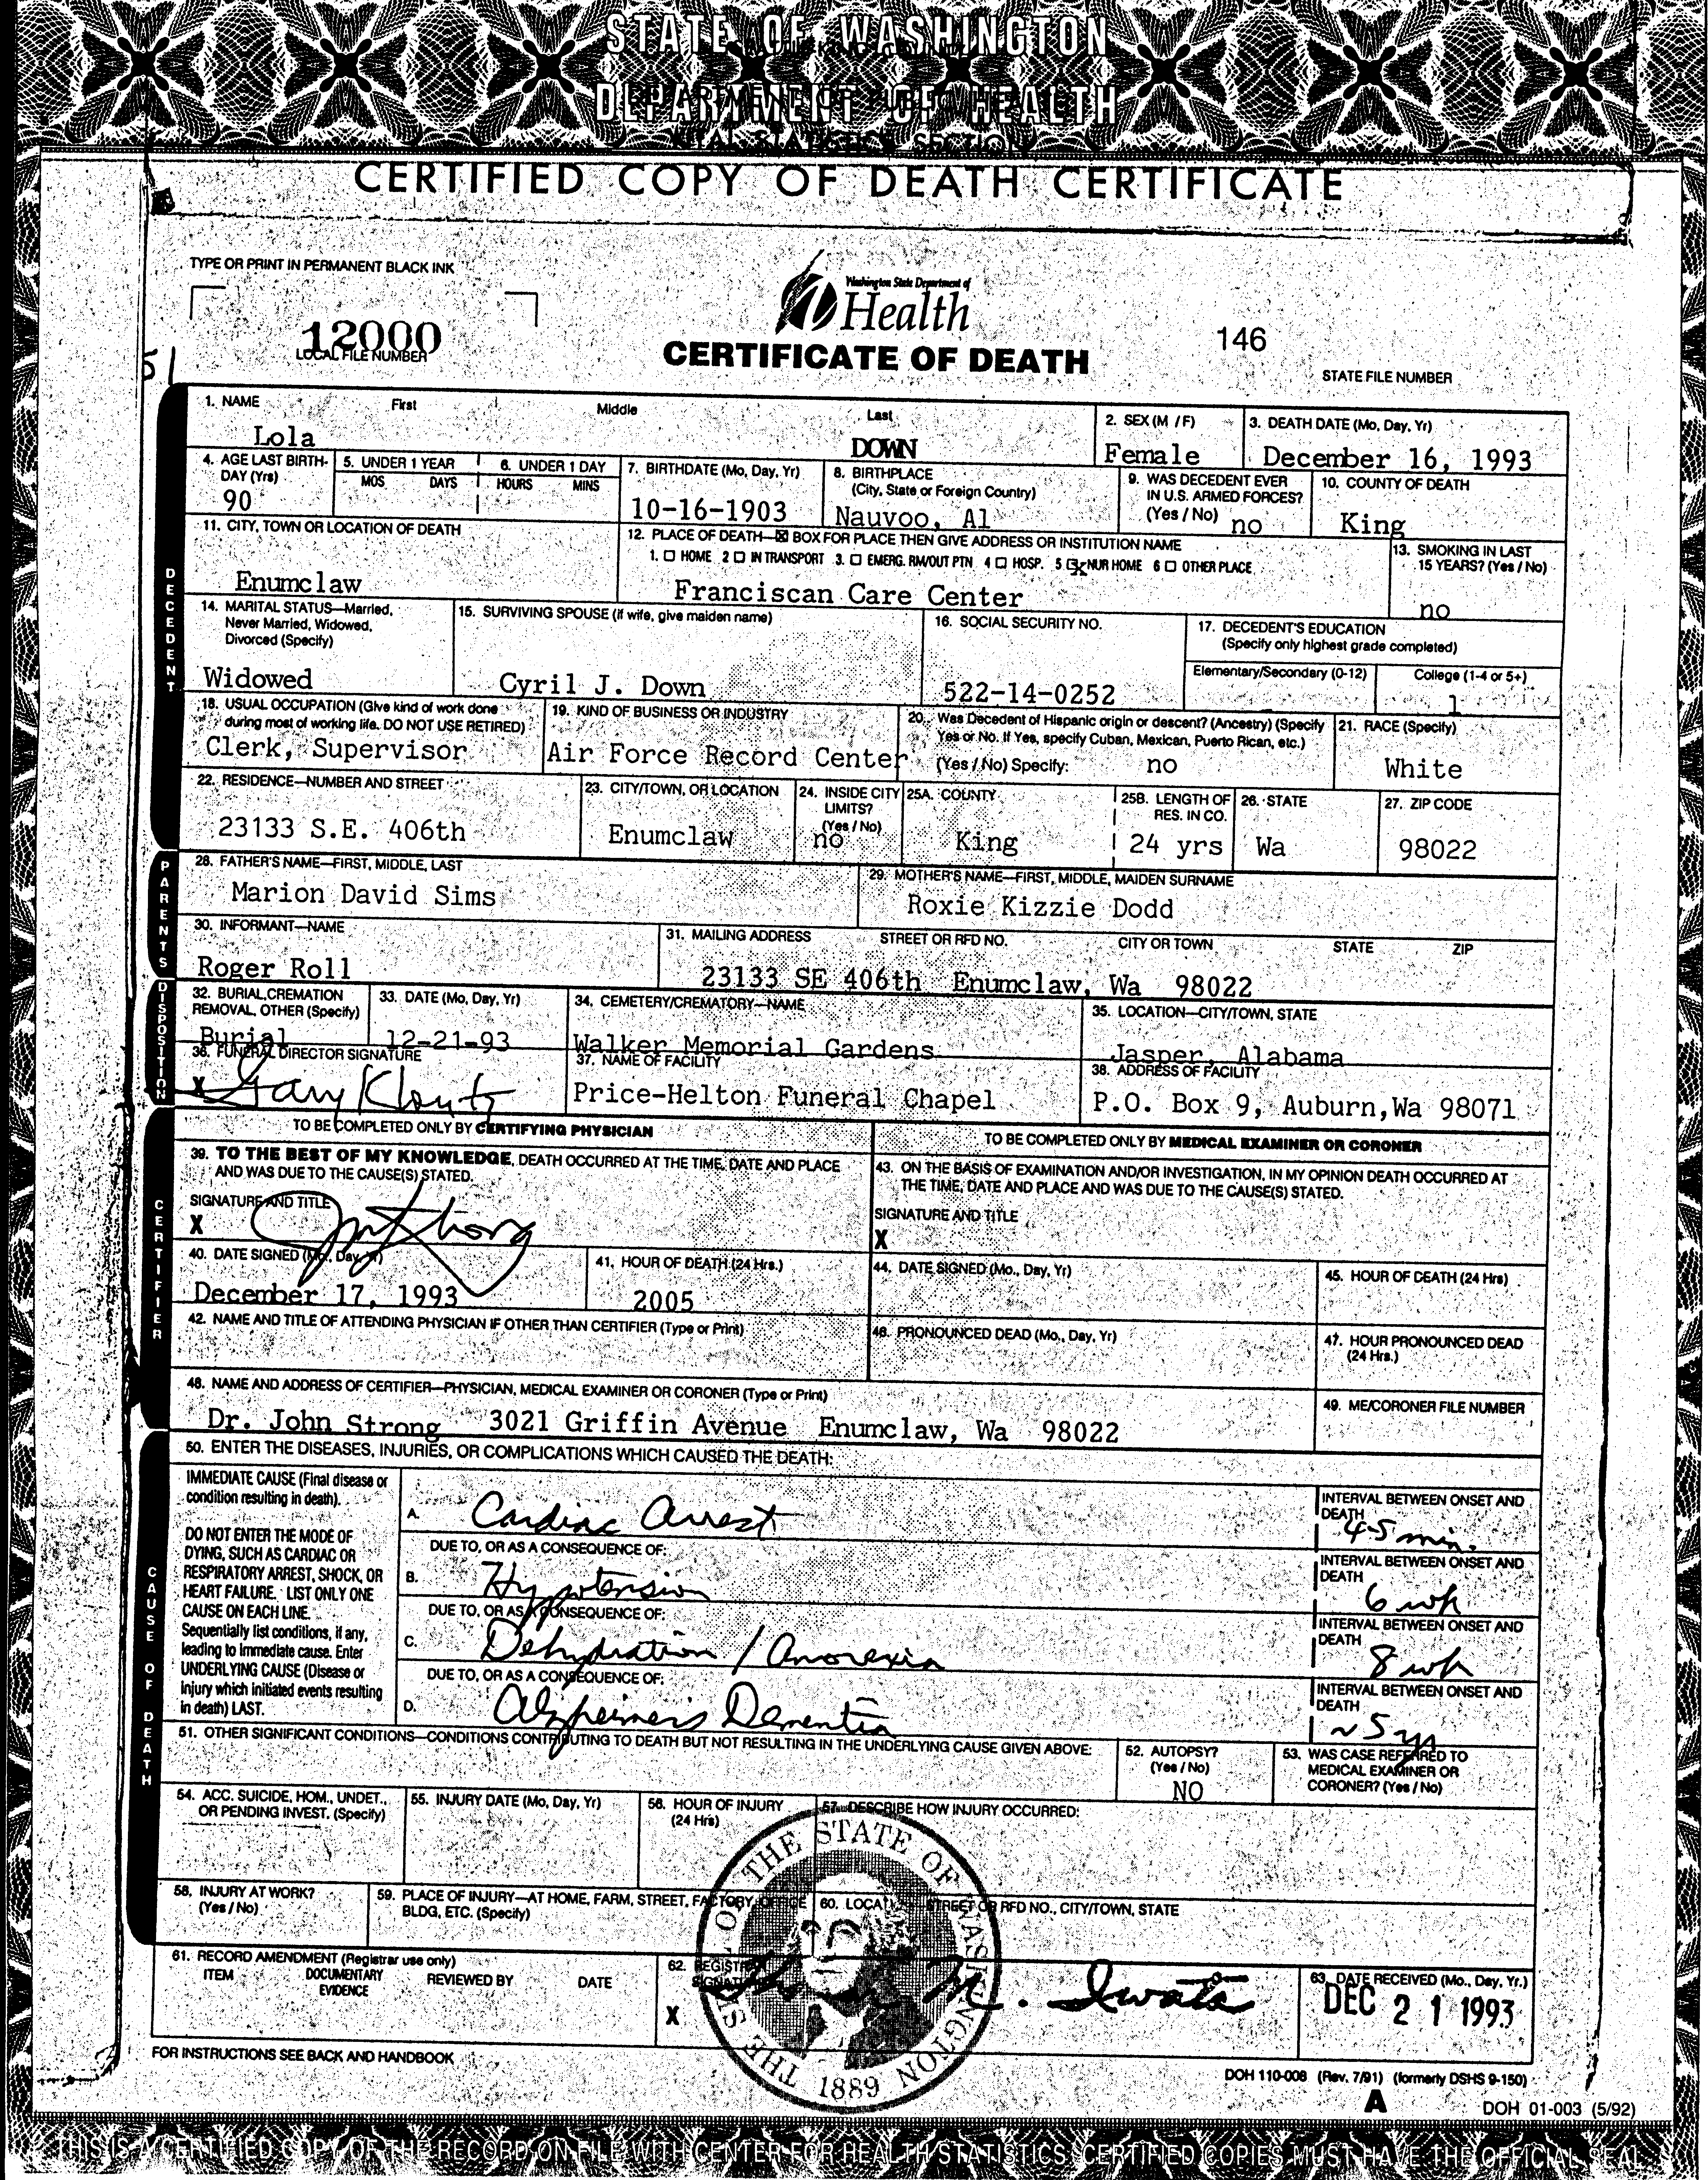 STATE OF WASHINGTON
DEPARTMENT OF HEALTH
VITAL STATISTICS SECTION
CERTIFIED COPY OF DEATH CERTIFICATE
TYPE OR PRINT IN PERMANENT BLACK INK
Washington State Department of
Health
12000
LOCAL FILE NUMBER
CERTIFICATE OF DEATH
146
STATE FILE NUMBER
51
DECEDENT
1. NAME First Middle Last
Lola DOWN
2. SEX (M / F)
Female
3. DEATH DATE (Mo, Day, Yr)
December 16, 1993
4. AGE LAST BIRTH-
DAY (Yrs)
90
5. UNDER 1 YEAR
MOS DAYS
6. UNDER 1 DAY
HOURS MINS
7. BIRTHDATE (Mo, Day, Yr)
10-16-1903
8. BIRTHPLACE
(City, State or Foreign Country)
Nauvoo, Al
9. WAS DECEDENT EVER
IN U.S. ARMED FORCES?
(Yes / No)
no
10. COUNTY OF DEATH
King
11. CITY, TOWN OR LOCATION OF DEATH
Enumclaw
12. PLACE OF DEATH—☒ BOX FOR PLACE THEN GIVE ADDRESS OR INSTITUTION NAME
1. ☐ HOME 2 ☐ IN TRANSPORT 3. ☐ EMERG. RM/OUT PTN 4 ☐ HOSP. 5 ☒ NUR HOME 6 ☐ OTHER PLACE
Franciscan Care Center
13. SMOKING IN LAST
15 YEARS? (Yes / No)
no
14. MARITAL STATUS—Married,
Never Married, Widowed,
Divorced (Specify)
Widowed
15. SURVIVING SPOUSE (if wife, give maiden name)
Cyril J. Down
16. SOCIAL SECURITY NO.
522-14-0252
17. DECEDENT'S EDUCATION
(Specify only highest grade completed)
Elementary/Secondary (0-12) College (1-4 or 5+)
1
18. USUAL OCCUPATION (Give kind of work done
during most of working life. DO NOT USE RETIRED)
Clerk, Supervisor
19. KIND OF BUSINESS OR INDUSTRY
Air Force Record Center
20. Was Decedent of Hispanic origin or descent? (Ancestry) (Specify
Yes or No. If Yes, specify Cuban, Mexican, Puerto Rican, etc.)
(Yes / No) Specify: no
21. RACE (Specify)
White
22. RESIDENCE—NUMBER AND STREET
23133 S.E. 406th
23. CITY/TOWN, OR LOCATION
Enumclaw
24. INSIDE CITY
LIMITS?
(Yes / No)
no
25A. COUNTY
King
25B. LENGTH OF
RES. IN CO.
24 yrs
26. STATE
Wa
27. ZIP CODE
98022
PARENTS
28. FATHER'S NAME—FIRST, MIDDLE, LAST
Marion David Sims
29. MOTHER'S NAME—FIRST, MIDDLE, MAIDEN SURNAME
Roxie Kizzie Dodd
30. INFORMANT—NAME
Roger Roll
31. MAILING ADDRESS STREET OR RFD NO. CITY OR TOWN STATE ZIP
23133 SE 406th Enumclaw, Wa 98022
DISPOSITION
32. BURIAL, CREMATION
REMOVAL, OTHER (Specify)
Burial
33. DATE (Mo, Day, Yr)
12-21-93
34. CEMETERY/CREMATORY—NAME
Walker Memorial Gardens
35. LOCATION—CITY/TOWN, STATE
Jasper, Alabama
36. FUNERAL DIRECTOR SIGNATURE
X Gary Kloutz
37. NAME OF FACILITY
Price-Helton Funeral Chapel
38. ADDRESS OF FACILITY
P.O. Box 9, Auburn, Wa 98071
CERTIFIER
TO BE COMPLETED ONLY BY CERTIFYING PHYSICIAN
39. TO THE BEST OF MY KNOWLEDGE, DEATH OCCURRED AT THE TIME, DATE AND PLACE
AND WAS DUE TO THE CAUSE(S) STATED.
SIGNATURE AND TITLE
X
TO BE COMPLETED ONLY BY MEDICAL EXAMINER OR CORONER
43. ON THE BASIS OF EXAMINATION AND/OR INVESTIGATION, IN MY OPINION DEATH OCCURRED AT
THE TIME, DATE AND PLACE AND WAS DUE TO THE CAUSE(S) STATED.
SIGNATURE AND TITLE
X
40. DATE SIGNED (Mo., Day, Yr)
December 17, 1993
41. HOUR OF DEATH (24 Hrs.)
2005
44. DATE SIGNED (Mo., Day, Yr)
45. HOUR OF DEATH (24 Hrs)
42. NAME AND TITLE OF ATTENDING PHYSICIAN IF OTHER THAN CERTIFIER (Type or Print)
46. PRONOUNCED DEAD (Mo., Day, Yr)
47. HOUR PRONOUNCED DEAD
(24 Hrs.)
48. NAME AND ADDRESS OF CERTIFIER—PHYSICIAN, MEDICAL EXAMINER OR CORONER (Type or Print)
Dr. John Strong 3021 Griffin Avenue Enumclaw, Wa 98022
49. ME/CORONER FILE NUMBER
CAUSE OF DEATH
50. ENTER THE DISEASES, INJURIES, OR COMPLICATIONS WHICH CAUSED THE DEATH:
IMMEDIATE CAUSE (Final disease or
condition resulting in death).
DO NOT ENTER THE MODE OF
DYING, SUCH AS CARDIAC OR
RESPIRATORY ARREST, SHOCK, OR
HEART FAILURE. LIST ONLY ONE
CAUSE ON EACH LINE.
Sequentially list conditions, if any,
leading to immediate cause. Enter
UNDERLYING CAUSE (Disease or
injury which initiated events resulting
in death) LAST.
A. Cardiac Arrest
INTERVAL BETWEEN ONSET AND
DEATH
4-5 min.
DUE TO, OR AS A CONSEQUENCE OF:
B. Hypotension
INTERVAL BETWEEN ONSET AND
DEATH
6 wk
DUE TO, OR AS A CONSEQUENCE OF:
C. Dehydration / Anorexia
INTERVAL BETWEEN ONSET AND
DEATH
8 wk
DUE TO, OR AS A CONSEQUENCE OF:
D. Alzheimers Dementia
INTERVAL BETWEEN ONSET AND
DEATH
~ 5 yr
51. OTHER SIGNIFICANT CONDITIONS—CONDITIONS CONTRIBUTING TO DEATH BUT NOT RESULTING IN THE UNDERLYING CAUSE GIVEN ABOVE:
52. AUTOPSY?
(Yes / No)
NO
53. WAS CASE REFERRED TO
MEDICAL EXAMINER OR
CORONER? (Yes / No)
54. ACC. SUICIDE, HOM., UNDET.,
OR PENDING INVEST. (Specify)
55. INJURY DATE (Mo, Day, Yr)
56. HOUR OF INJURY
(24 Hrs)
57. DESCRIBE HOW INJURY OCCURRED:
58. INJURY AT WORK?
(Yes / No)
59. PLACE OF INJURY—AT HOME, FARM, STREET, FACTORY, OFFICE
BLDG, ETC. (Specify)
60. LOCATION—STREET OR RFD NO., CITY/TOWN, STATE
61. RECORD AMENDMENT (Registrar use only)
ITEM DOCUMENTARY EVIDENCE REVIEWED BY DATE
62. REGISTRAR
SIGNATURE
X M. Iwata
63. DATE RECEIVED (Mo., Day, Yr.)
DEC 21 1993
THE SEAL OF THE STATE OF WASHINGTON
1889
FOR INSTRUCTIONS SEE BACK AND HANDBOOK
DOH 110-008 (Rev. 7/91) (formerly DSHS 9-150)
A
DOH 01-003 (5/92)
THIS IS A CERTIFIED COPY OF THE RECORD ON FILE WITH CENTER FOR HEALTH STATISTICS. CERTIFIED COPIES MUST HAVE THE OFFICIAL SEAL.